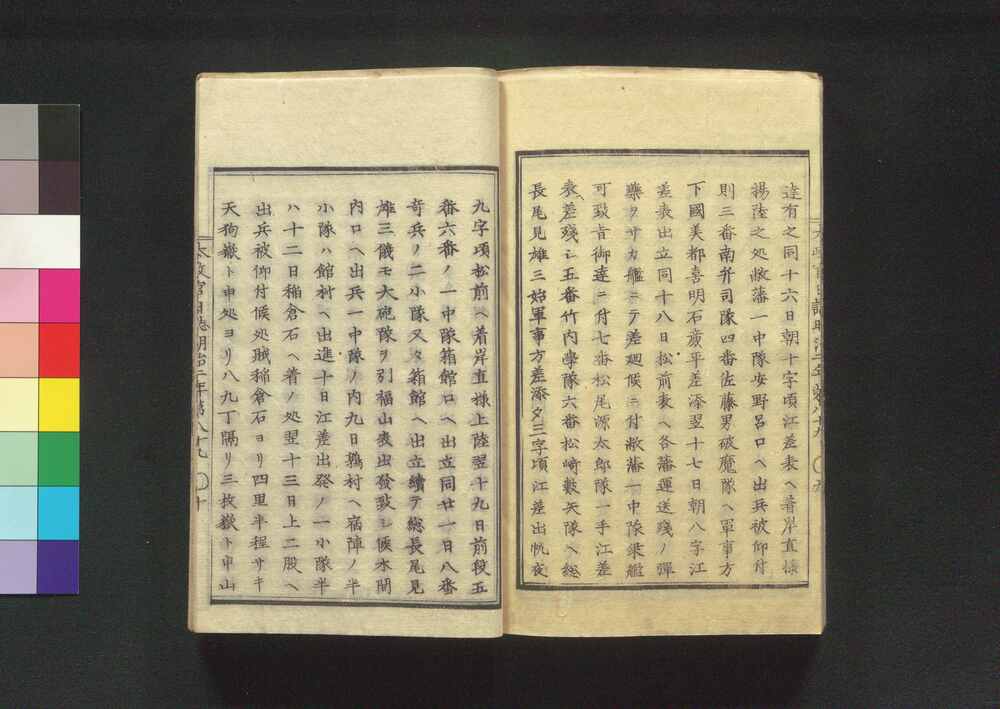 達有之同十六日朝十字頃江差表ヘ着岸直様
揚陸之処敝藩一中隊安野呂口ヘ出兵被仰付
則三番南弁司隊四番佐藤男破魔隊ヘ軍事方
下國美都喜明石歳平差添翌十七日朝八字江
差表出立同十八日松前表ヘ各藩運送残ノ彈
藥クサカ艦ニテ差廻候ニ付敝藩一中隊乗艦
可致旨御達ニ付七番松尾源太郎隊一手江差
表差残シ五番竹内學隊六番松崎數矢隊ヘ総
長尾見雄三始軍事方差添夕三字頃江差出帆夜
太政官日誌明治二年第八十九 〇九
九字頃松前ヘ着岸直様上陸翌十九日前段五
番六番ノ一中隊箱館口ヘ出立同廿一日八番
奇兵ノ二小隊又々箱館ヘ出立續テ総長尾見
雄三儀モ大砲隊ヲ引福山表出發致シ候木間
内口ヘ出兵一中隊ノ内九日鶉村ヘ宿陣ノ半
小隊ハ館村ヘ出進十日江差出発ノ一小隊半
ハ十二日稲倉石ヘ着ノ処翌十三日上二股ヘ
出兵被仰付候処賊稲倉石ヨリ四里半程サキ
天狗嶽ト申処ヨリ八九丁隔リ三枚嶽ト申山
太政官日誌明治二年第八十九 〇十